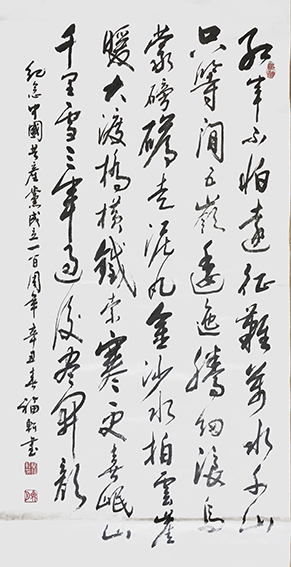 紅軍不怕遠征難萬水千山
只等閒五嶺逶迤騰細浪烏
蒙磅礴走泥丸金沙水拍雲崖
暖大渡橋橫鐵索寒更喜岷山
千里雪三軍過後盡開顏
紀念中國共產黨成立一百周年辛丑春福軒書